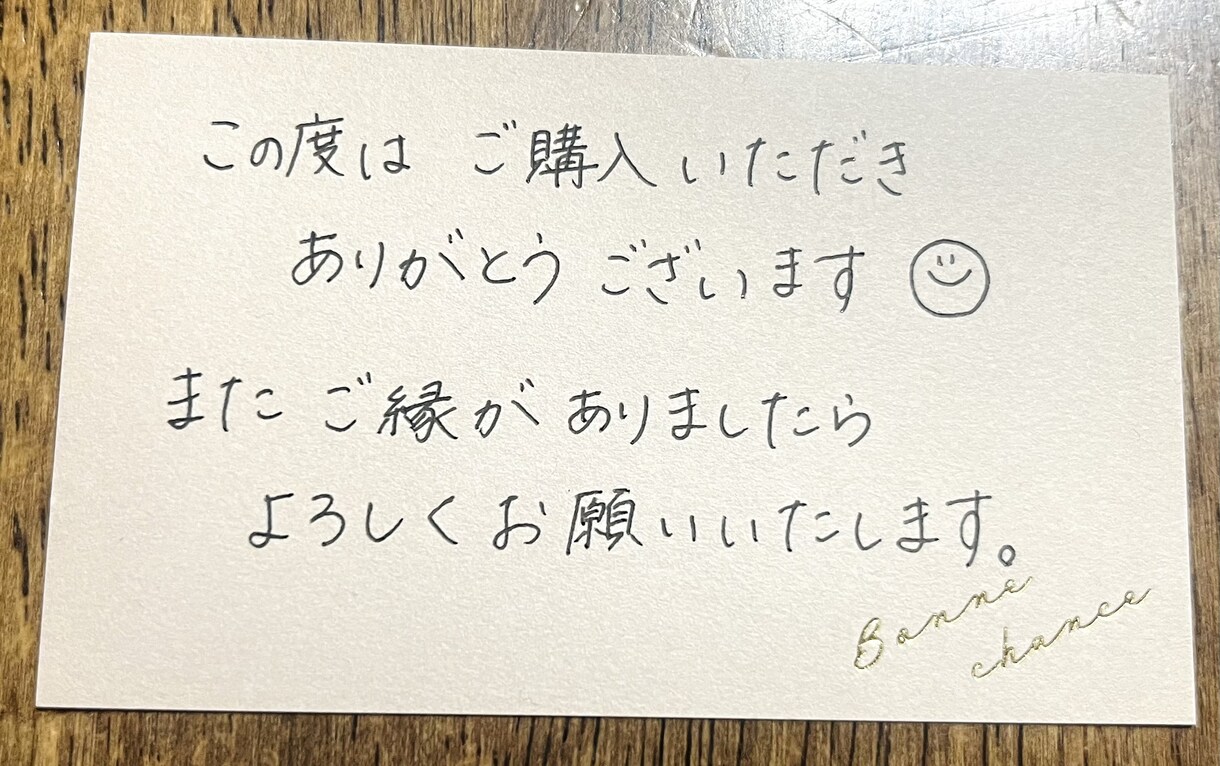 この度は ご購入いただき
ありがとうございます
また ご縁が ありましたら
よろしくお願いいたします。
Bonne
chance